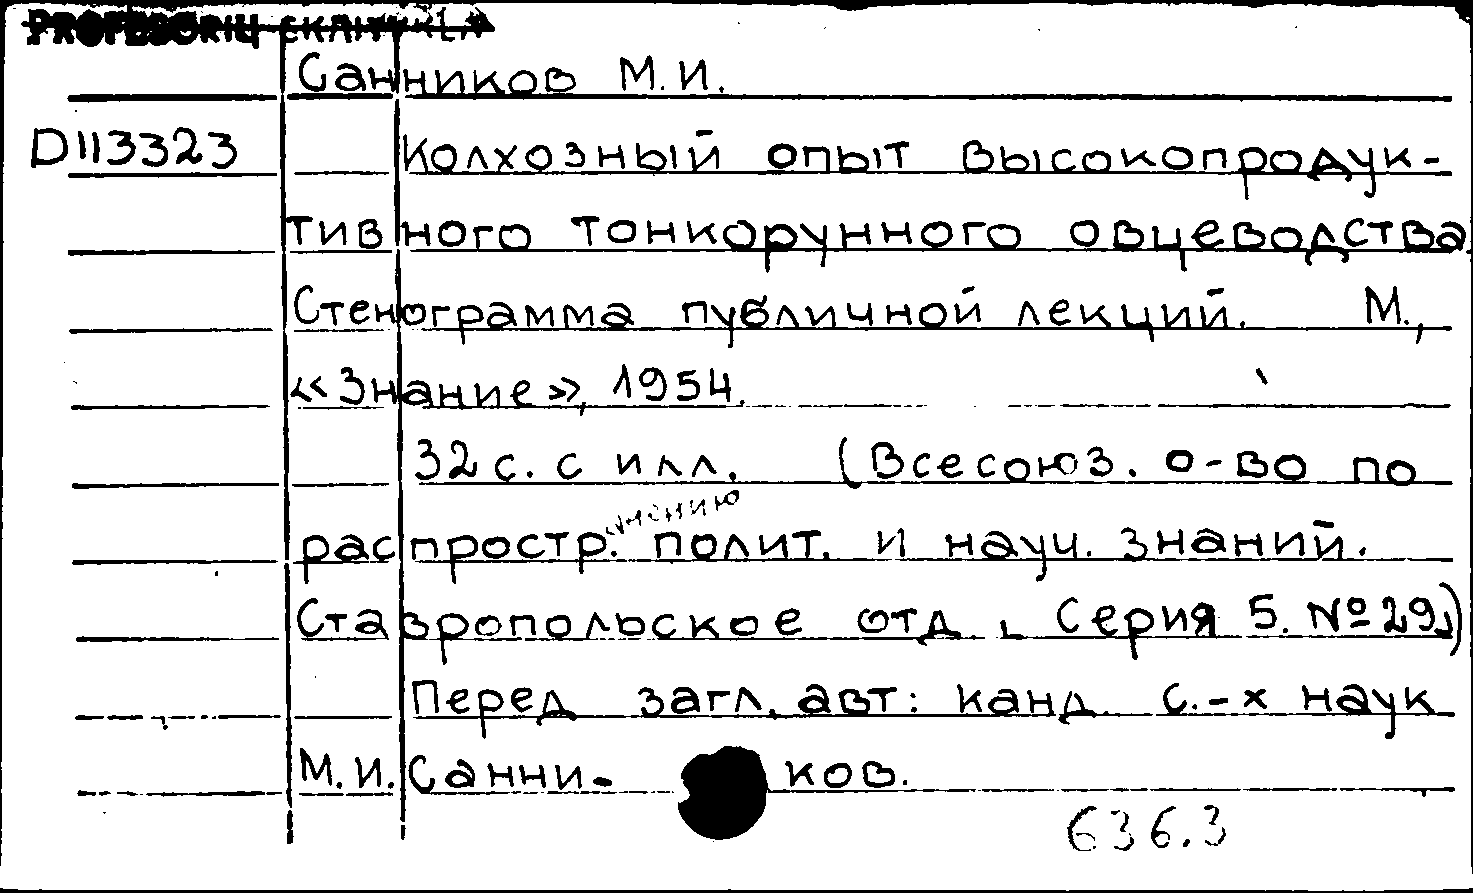 PROFESORIŲ SKAITYKLA
Санников М.И.
D113323 Колхозный опыт высокопродук-
тивного тонкорунного овцеводства.
Стенограмма публичной лекций. М.,
«Знание», 1954.
32 с. с илл. (Всесоюз. о-во по
распростр. полит. и науч. знаний.
Ставропольское отд. Серия 5. № 29.)
Перед загл. авт: канд. с.-х наук
М.И. Санни- ков.
636.3